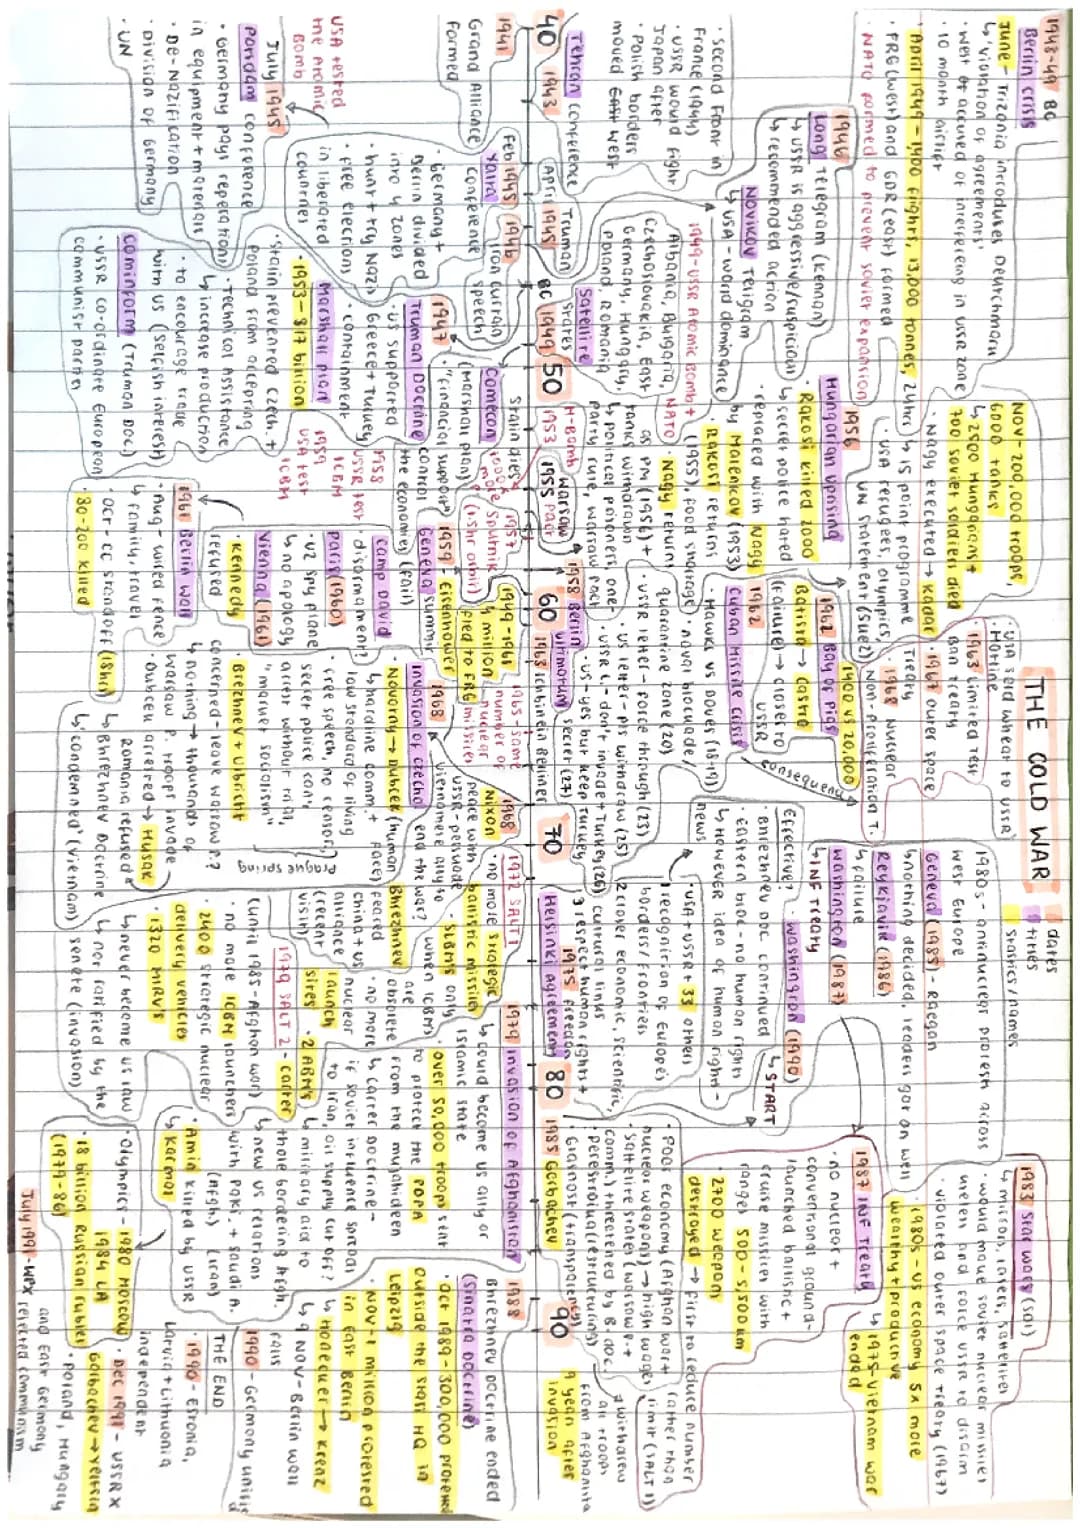 THE COLD WAR
dates
titles
statics/names
1948-49 BC
Berlin crisis
June - Trizonia introduces Deutchmark
↳ 'violation of agreements'
West accused of interfering in USSR zone
· 10 month airlift
· April 1949 - 1,400 flights, 13,000 tonnes, 24hrs
· FRG (west) and GDR (east) formed
· NATO formed to prevent soviet expansion
1946
Long Telegram (Kennan)
↳ USSR is aggressive/suspicious
↳ recommended action
Novikov Telegram
↳ USA - world dominance
1949 - USSR Atomic Bomb + NATO
Albania, Bulgaria,
Czechoslovakia, East
Germany, Hungary,
Poland, Romania
Satellite
States
· Second front in
France (1944)
· USSR would fight
Japan after
· Polish borders
moved west
Tehran Conference
40
1943
April 1945
Truman
BC 1949
50
1941
Grand Alliance
formed
Feb 1945
Yalta
Conference
· Germany +
Berlin divided
into 4 zones
· hunt + try Nazis
· free elections
in liberated
countries
1946
Iron curtain
speech
USA tested
the Atomic
Bomb
July 1945
Potsdam conference
· Germany pays reperations
in equipment + material
· De-nazification
· Division of Germany
· UN
1947
Truman Docrine
· US supported
Greece + Turkey
· containment
Marshall plan
· 1953 - $17 billion
· Stalin prevented Czech. +
Poland from accepting
· Technical Assistance
↳ increase production
· to encourage trade
with US (selfish interest)
Cominform (Truman Doc.)
· USSR co-ordinate European
communist parties
Comecon
(Marshall plan)
· "financial support"
control
the economies (fail)
Nov - 200,000 troops,
6000 tanks
↳ 2500 Hungarians +
700 soviet soldiers died
· Nagy executed → Kadar
↳ 15 point programme
· USA refugees, olympics,
UN statement (Suez)
1956
Hungarian uprising
· Rakosi killed 2000
↳ secret police hated
· replaced with Nagy
by Malenkov (1953)
· Rakosi returns
(1955), food shortage
· Nagy return
as PM (1956) +
tanks withdrawn
↳ political prisoners, one-
party rule, warsaw pact
Stalin dies
1953
H-Bomb
Warsaw
1955 pact
1957
Sputnik
(1.5hr orbit)
1958
USSR test
ICBM
1959
USA test
ICBM
1958 Berlin
ultimatum
60
1949-1961
4 million
fled to FRG
1959 - Eisenhower
Geneva summit
Camp David
disarmament?
Paris (1960)
· U2 spy plane
↳ no apology
Vienna (1961)
· Kennedy
refused
1961 Berlin wall
· Aug - wired fence
↳ family, travel
Oct - CC standoff (18hr)
· 80-200 killed
USA send wheat to USSR
· Hotline
· 1963 Limited Test
Ban Treaty
· 1967 outer space
Treaty
· 1968 Nuclear
Non-proliferation T.
1400 vs 20,000
1961 Bay of Pigs
Batista → Castro
(Failure) → closer to
USSR
1962
Cuban Missile Crisis
· Hawks vs Doves (18-19)
· naval blockade /
quarantine zone (20)
· USSR letter - force through (23)
· US letter - PS withdraw (25)
· USSR L. - don't invade + Turkey (26)
· US - yes but keep Turkey
secret (27)
consequences
1963 Ich bin ein Berliner
1965 - same
number of
nuclear
missiles
1968
Nixon
peace with
USSR - persuade
Vietnamese ally to
end the war?
1968
Invasion of Czecho
· Novotny → Dubcek (human
face)
↳ hardline comm. +
low standard of living
· free speech, no censors,
secret police can't
arrest without trial,
"market socialism"
Prague Spring
· Brezhnev + Ulbricht
concerned - leave warsaw p.?
↳ nothing → thousands of
warsaw p. troops invade
· Dubcek arrested → Husak
Romania refused
↳ Brezhnev Doctrine
↳ 'condemned' (Vietnam)
70
1972 SALT 1
· no more strategic
balistic missiles
· SLBMs only
when ICBMs
are
obsolete
· no more
nuclear
launch
sites
· 2 ABMs
Brezhnev
feared
China + US
alliance
(recent
visit)
1979 SALT 2 - Carter
(until 1985 - Afghan won)
· no more ICBM launchers
· 2400 strategic nuclear
delivery vehicles
· 1320 MIRVs
↳ never become US law
↳ not ratified by the
senate (invasion)
Effective?
· Brezhnev Doc continued
· Eastern bloc - no human rights
↳ However idea of human rights -
news
· USA + USSR + 33 others
1 recognition of Europe's
borders / frontiers
2 closer economic, scientific,
cultural links
3 respect human rights +
freedom
1975
Helsinki Agreement
1980s - antinuclear protests across
West Europe
Geneva (1985) - Reagan
↳ nothing decided, leaders got on well
Reykjavik (1986)
↳ failure
Washington (1987)
↳ INF Treaty
· Washington (1990)
↳ START
1979 Invasion of Afghanistan
↳ could become US ally or
Islamic state
· over 50,000 troops sent
to protect the PDPA
from the mujahideen
↳ Carter Doctrine -
if soviet influence spreads
to Iran, oil supply cut off?
↳ military aid to
those bordering Afgh.
↳ new US relations
with Paki. + Saudi A.
(Afgh.) (Iran)
· Amin killed by USSR
↳ Karmal
· Olympics - 1980 Moscow
1984 LA
· 18 billion Russian rubles
(1979-86)
80
1985 Gorbachev
· Poor economy (Afghan war +
nuclear weapons) → high wages
· Sattelite states (warsaw p. +
comm.) threatened by B. doc.
· Perestroika (restructuring)
· Glasnost (transparency)
1983 Star Wars (SDI)
↳ mirrors, lasers, satellites
· would make soviet nuclear missiles
useless and force USSR to disarm
· violated outer space treaty (1967)
· 1980s - US economy 5x more
wealthy + productive
↳ 1975 - Vietnam war
ended
1987 INF Treaty
· no nuclear +
conventional ground-
launched balistic +
cruise missiles with
ranges 500-5,500km
· 2700 weapons
destroyed → first to reduce number
rather than
limit (SALT 1)
↳ withdrew
all troops
from Afghanista
9 years after
invasion
90
1988
Brezhnev Doctrine ended
(Sinatra Doctrine)
· Oct 1989 - 300,000 protested
outside the stasi HQ in
Leipzig
· Nov - 1 million protested
in East Berlin
↳ Honecker → Krenz
↳ 9 Nov - Berlin wall
falls
1990 - Germany unites
THE END
· 1990 - Estonia,
Latvia + Lithuania
independent
· Dec 1991 - USSR X
Gorbachev → Yeltsin
· Poland, Hungary
and East Germany
rejected communism
July 1991 - WPX